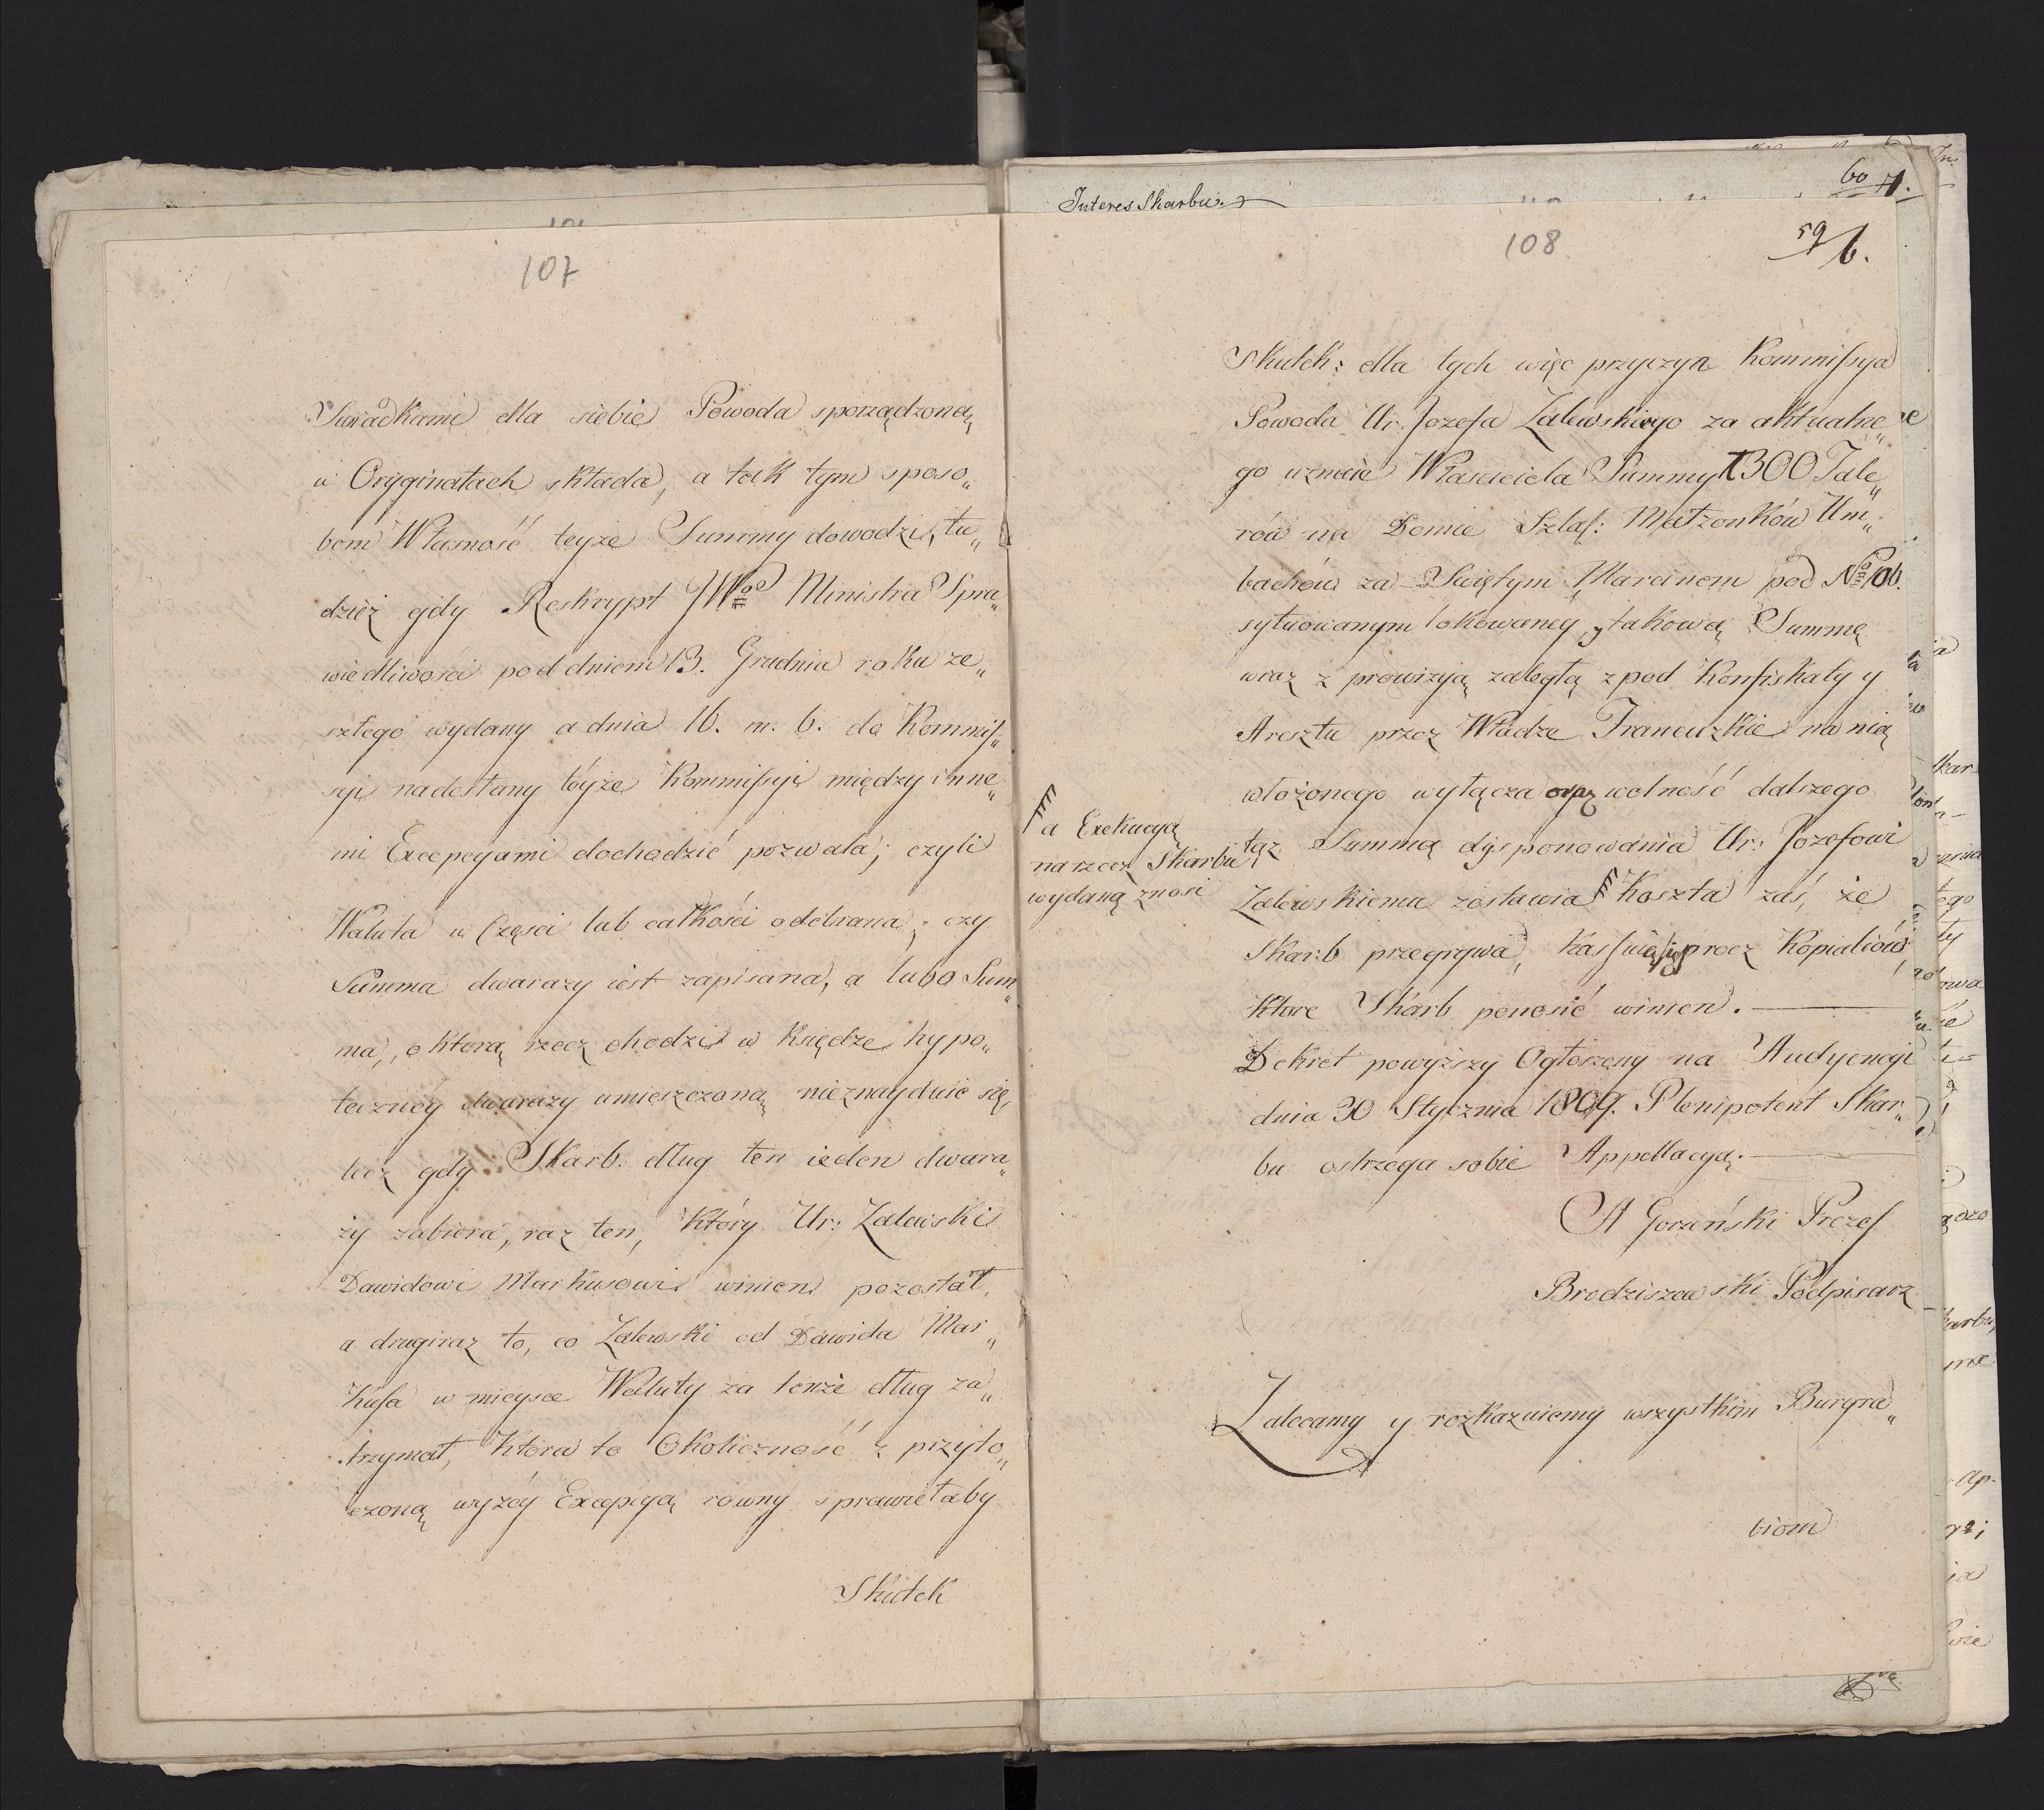 107
Swiadkami dla siebie Powoda sporządzoną
w Oryginałach składa, a tak tym sposo„
bem Własność teyże Summy dowodzi, tu„
dzież gdy Reskrypt JWgo Ministra Spra„
wiedliwości pod dniem 13. Grudnia roku ze„
szłego wydany a dnia 16. m. b. do Kommis„
syi nadesłany téyże Kommissyi między inne„
mi Excepcyami dochodzić pozwala; czyli
Waluta w Części lub całkości odebrana; czy
Summa dwarazy iest zapisana, a lubo Sum„
ma, o którą rzecz chodzi w Księdze hypo„
teczney dwarazy umieszczoną nieznayduie się,
lecz gdy Skarb dług ten ieden dwara„
zy zabiera, raz ten, który Ur: Zalewski
Dawidowi Markusowi winien pozostał,
a drugiraz to, co Zalewski od Dawida Mar„
kusa w mieysce Waluty za tenże dług za„
trzymał, która to Okoliczność z przyto„
czoną wyżéy Excepcyą rowny sprawiełaby
Skutek
Interes Skarbu.
60
7.
108
59
6.
Skutek: dla tych więc przyczyn Kommissya
Powoda Ur. Jozefa Zalewskiego za aktualne„
go uznaie Właściciela Summy 1300 Tale„
rów na Domie Szlaf: Małżonków Um„
bachów za Swiętym Marcinem pod No 106.
sytuowanym lokowaney, y takową Summę
wraz z prowizyą zaległą z pod Konfiskaty y
Aresztu przez Władze Francuzkie na nią
włożonego wyłącza oraz wolność dalszego
tąż Summą dysponowania Ur: Jozefowi
Zalewskiemu zostawia Koszta zaś, że
Skarb przegrywa, kassuie się procz Kopialiów,
ktore Skarb ponosić winien.
a Exekucyą
na rzecz Skarbu
wydaną znosi
Dekret powyższy Ogłoszony na Audyencyi
dnia 30 Stycznia 1809. Plenipotent Skar„
bu ostrzega sobie Appellacyą.
A Gorzeński Prezes
Brodziszewski Podpisarz
Zalecamy y rozkazuiemy wszystkim Burgra„
biom